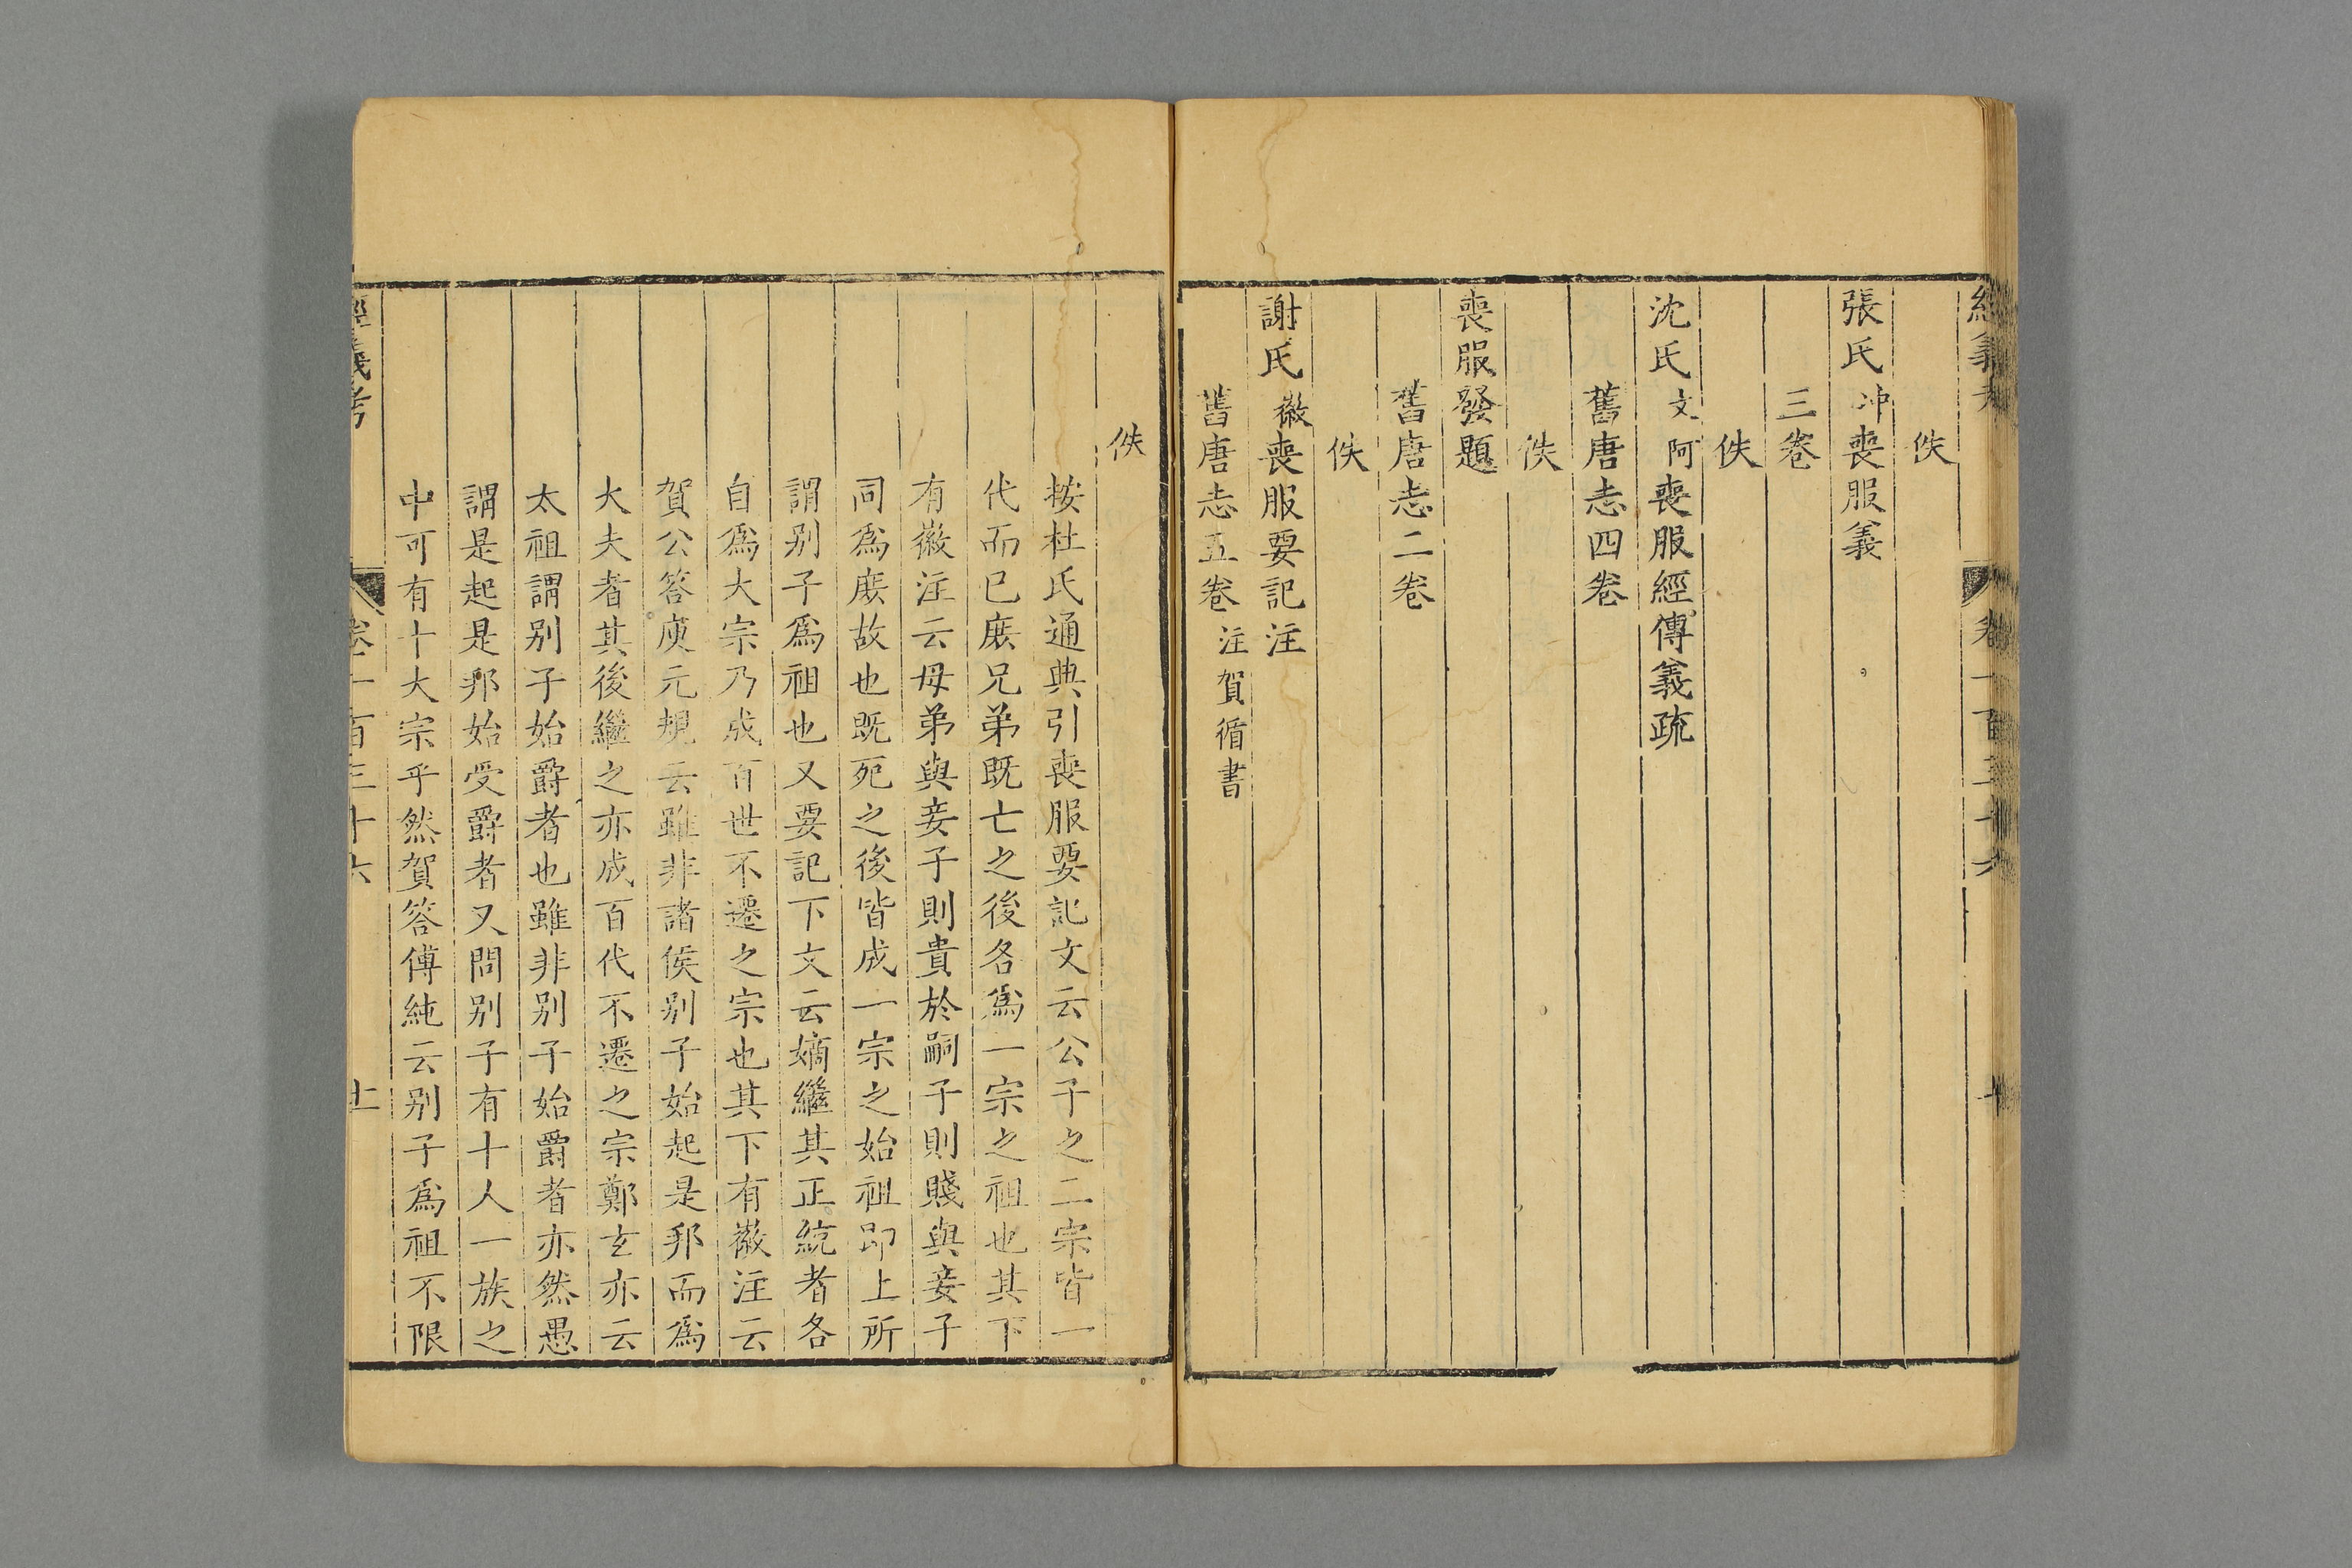 佚
張氏冲喪服義
三卷
佚
沈氏文阿喪服經傳義疏
舊唐志四卷
佚
喪服發題
舊唐志二卷
佚
謝氏徽喪服要記注
舊唐志五卷注賀循書
佚
按杜氏通典引喪服要記文云公子之二宗皆一
代而已庶兄弟既亡之後各爲一宗之祖也其下
有徽注云母弟與妾子則貴於嗣子則賤與妾子
同爲庶故也既死之後皆成一宗之始祖即上所
謂别子爲祖也又要記下文云嫡繼其正統者各
自爲大宗乃成百世不遷之宗也其下有徽注云
賀公答庾元規云雖非諸侯别子始起是邦而爲
大夫者其後繼之亦成百代不遷之宗鄭玄亦云
太祖謂别子始爵者也雖非别子始爵者亦然愚
謂是起是邦始受爵者又問别子有十人一族之
中可有十大宗乎然賀答傅純云别子爲祖不限
經義考 卷一百三十六 十一